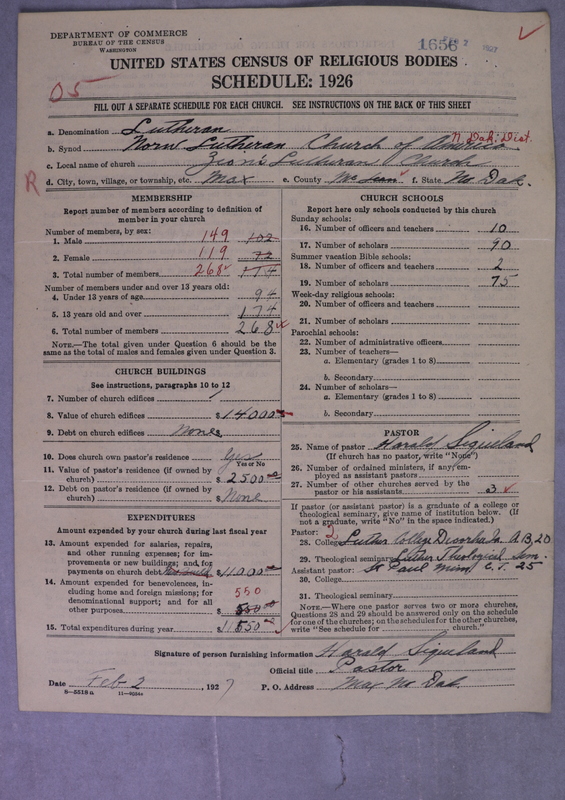 DEPARTMENT OF COMMERCE
BUREAU OF THE CENSUS
WASHINGTON
1656
UNITED STATES CENSUS OF RELIGIOUS BODIES
SCHEDULE: 1926
05
FILL OUT A SEPARATE SCHEDULE FOR EACH CHURCH. SEE INSTRUCTIONS ON THE BACK OF THIS SHEET
a. Denomination Lutheran
b. Synod Norw Lutheran Church of America N. Dak. Dist.
c. Local name of church Zions Lutheran Church
R
d. City, town, village, or township, etc. Max e. County McLean f. State No Dak.
MEMBERSHIP
Report number of members according to definition of
member in your church
Number of members, by sex:
1. Male 149 102
2. Female 119 72
3. Total number of members. 268 174
Number of members under and over 13 years old:
4. Under 13 years of age 94
5. 13 years old and over 174
6. Total number of members 268
NOTE.—The total given under Question 6 should be
same as the total of males and females given under Question 3.
CHURCH BUILDINGS
See instructions, paragraphs 10 to 12
7. Number of church edifices 1
8. Value of church edifices $14000
9. Debt on church edifices None
10. Does church own pastor's residence? Yes
Yes or No
11. Value of pastor's residence (if owned by
church) $2500
12. Debt on pastor's residence (if owned by
church) $None
EXPENDITURES
Amount expended by your church during last fiscal year
13. Amount expended for salaries, repairs,
and other running expenses; for im-
provements or new buildings; and for
payments on church debt $11000
14. Amount expended for benevolences, in-
cluding home and foreign missions; for
denominational support; and for all
other purposes $ 550
15. Total expenditures during year $11550
CHURCH SCHOOLS
Report here only schools conducted by this church
Sunday schools:
16. Number of officers and teachers 10
17. Number of scholars 90
Summer vacation Bible schools:
18. Number of officers and teachers 2
19. Number of scholars 75
Week-day religious schools:
20. Number of officers and teachers
21. Number of scholars
Parochial schools:
22. Number of administrative officers
23. Number of teachers—
a. Elementary (grades 1 to 8)
b. Secondary
24. Number of scholars—
a. Elementary (grades 1 to 8)
b. Secondary
PASTOR
25. Name of pastor Harald Siqueland
(If church has no pastor, write "None")
26. Number of ordained ministers, if any, em-
ployed as assistant pastors
27. Number of other churches served by the
pastor or his assistants 3
If pastor (or assistant pastor) is a graduate of a college or
theological seminary, give name of institution below. (If
not a graduate, write "No" in the space indicated.)
Pastor: 2
28. College Luther College Decorah Ia A.B, 20
29. Theological seminary Luther Theological Sem.
Assistant pastor: St Paul Minn C.T. 25
30. College
31. Theological seminary
NOTE.—Where one pastor serves two or more churches,
Questions 28 and 29 should be answered only on the schedule
for one of the churches; on the schedules for the other churches,
write "See schedule for church."
Signature of person furnishing information Harald Siqueland
Official title Pastor
Date Feb 2, 1927 P. O. Address Max No Dak.
8—5518a 11—9584